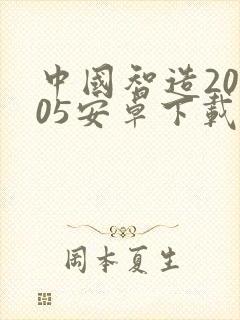 中國智造20
05安卓下載
岡本夏生